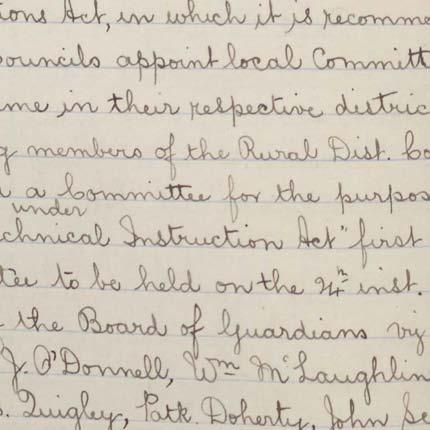 ions Act, in which it is recomme
ouncils appoint local Committ
me in their respective distric
g members of the Rural Dist. Co
a Committee for the purpos
under
chnical Instruction Act" first
tee to be held on the inst.
the Board of Guardians viz
J. O'Donnell, Wm McLaughlin
. Quigley, Patk. Doherty, John Se